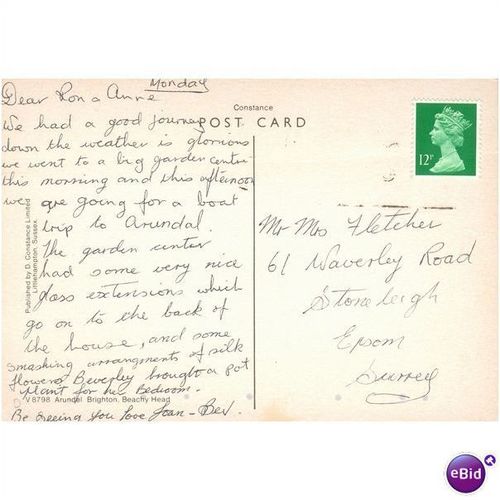 Monday
Dear Ron & Anne
Constance
POST CARD
We had a good journey
down the weather is glorious
we went to a big garden centre
this morning and this afternoon
we are going for a boat
trip to Arundal.
The garden center
had some very nice
glass extensions which
go on to the back of
the house, and some
smashing arrangments of silk
flowers Beverley brought a pot
plant for her Bedroom.
Be seeing you Love Joan - Bev.
V 8798 Arundel Brighton, Beachy Head
Published by D. Constance Limited
Littlehampton, Sussex
12P
Mr Mrs Fletcher
61 Waverley Road
Stoneleigh
Epsom
Surrey
eBid